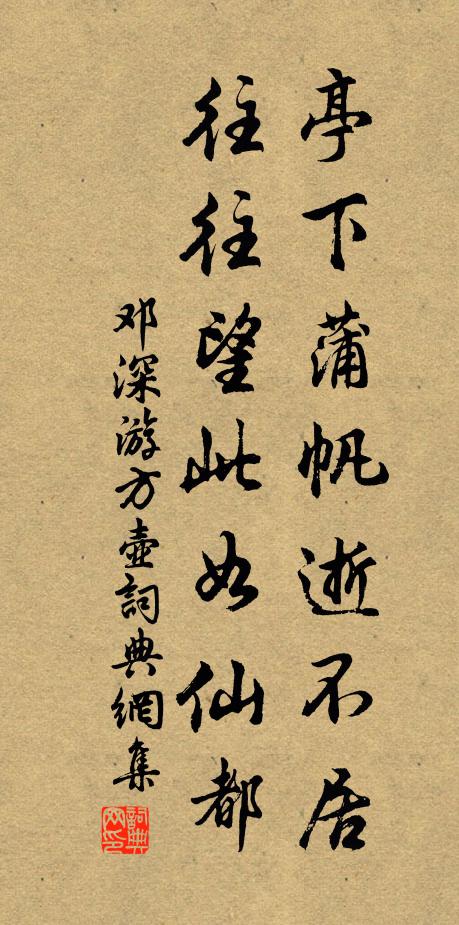 亭下蒲帆逝不居
往往望此如仙都
邓深游方壶詞典網集
詞典网印